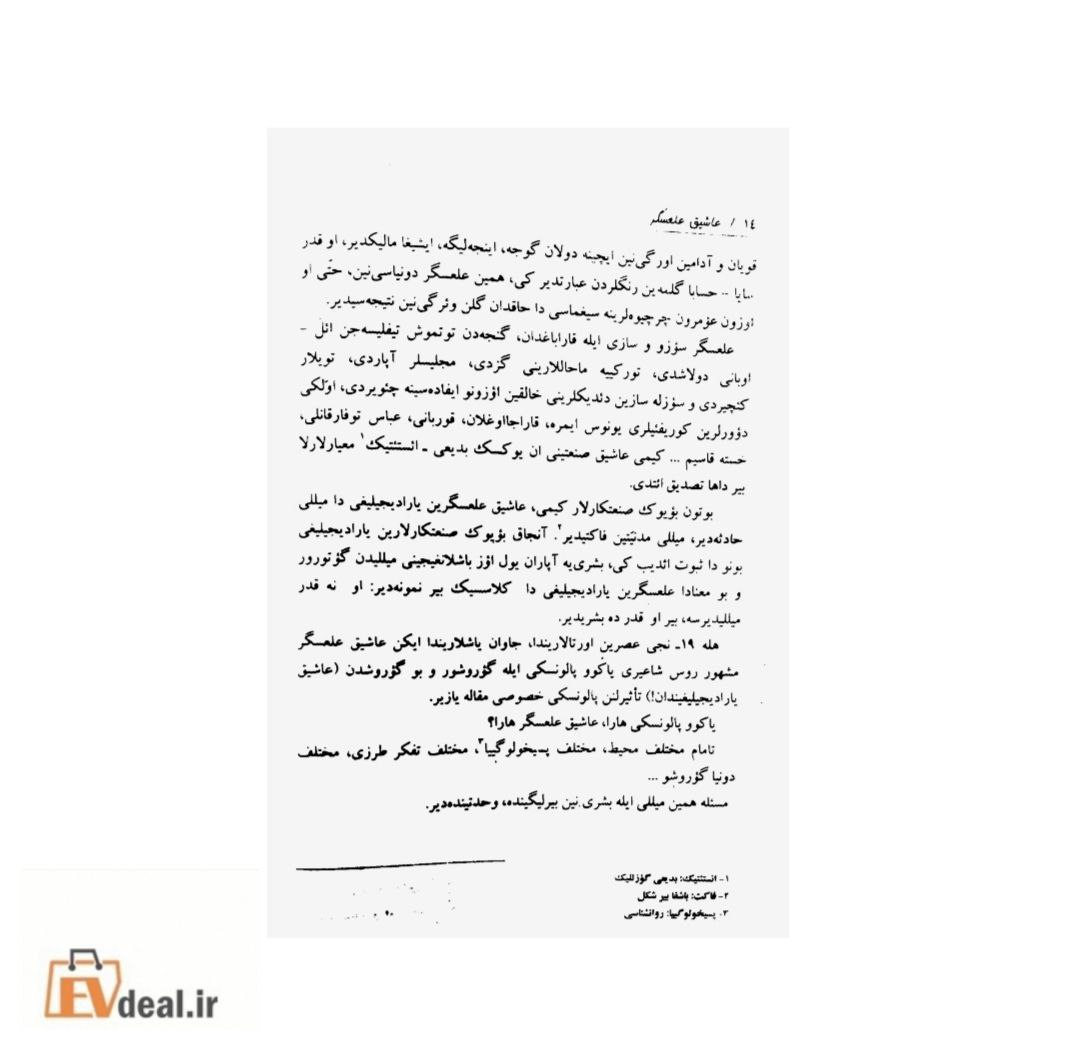 ١٤ / عاشیق علعسگر
قویان و آدامین اورگی‌نین ایچینه دولان گوجه، اینجه‌لیگه، ایشیغا مالیکدیر، او قدر
سایا - حسابا گلمه‌ین رنگلردن عبارتدیر کی، همین علعسگر دونیاسی‌نین، حتّی او
اوزون عؤمرون چرچیوه‌لرینه سیغماسی دا حاقدان گلن وئرگی‌نین نتیجه‌سیدیر.
علعسگر سؤزو و سازی ایله قاراباغدان، گنجه‌دن توتموش تیفلیسه‌جن ائل -
اوبانی دولاشدی، تورکییه ماحاللارینی گزدی، مجلیسلر آپاردی، تویلار
کئچیردی و سؤزله سازین دئدیکلرینی خالقین اؤزونو ایفاده‌سینه چئویردی، اوّلکی
دؤورلرین کوریفئیلری یونوس ایمره، قاراجااوغلان، قوربانی، عباس توفارقانلی،
خسته قاسیم ... کیمی عاشیق صنعتینی ان یوکسک بدیعی ـ ائستتیک۱ معیارلارلا
بیر داها تصدیق ائتدی.
بوتون بؤیوک صنعتکارلار کیمی، عاشیق علعسگرین یارادیجیلیغی دا میللی
حادثه‌دیر، میللی مدنیّتین فاکتیدیر۲. آنجاق بؤیوک صنعتکارلارین یارادیجیلیغی
بونو دا ثبوت ائدیب کی، بشری‌یه آپاران یول اؤز باشلانغیجینی میللیدن گؤتورور
و بو معنادا علعسگرین یارادیجیلیغی دا کلاسسیک بیر نمونه‌دیر: او نه قدر
میللیدیرسه، بیر او قدر ده بشریدیر.
هله ۱۹ـ نجی عصرین اورتالاریندا، جاوان یاشلاریندا ایکن عاشیق علعسگر
مشهور روس شاعیری یاکوو پالونسکی ایله گؤروشور و بو گؤروشدن (عاشیق
یارادیجیلیغیندان!) تأثیرلنن پالونسکی خصوصی مقاله یازیر.
یاکوو پالونسکی هارا، عاشیق علعسگر هارا؟
تامام مختلف محیط، مختلف پسیخولوگییا۳، مختلف تفکر طرزی، مختلف
دونیا گؤروشو ...
مسئله همین میللی ایله بشری‌نین بیرلیگینده، وحدتینده‌دیر.
۱- ائستتیک: بدیعی گؤزللیک
۲- فاکت: باشقا بیر شکل
۳- پسیخولوگییا: روانشناسی
EVdeal.ir